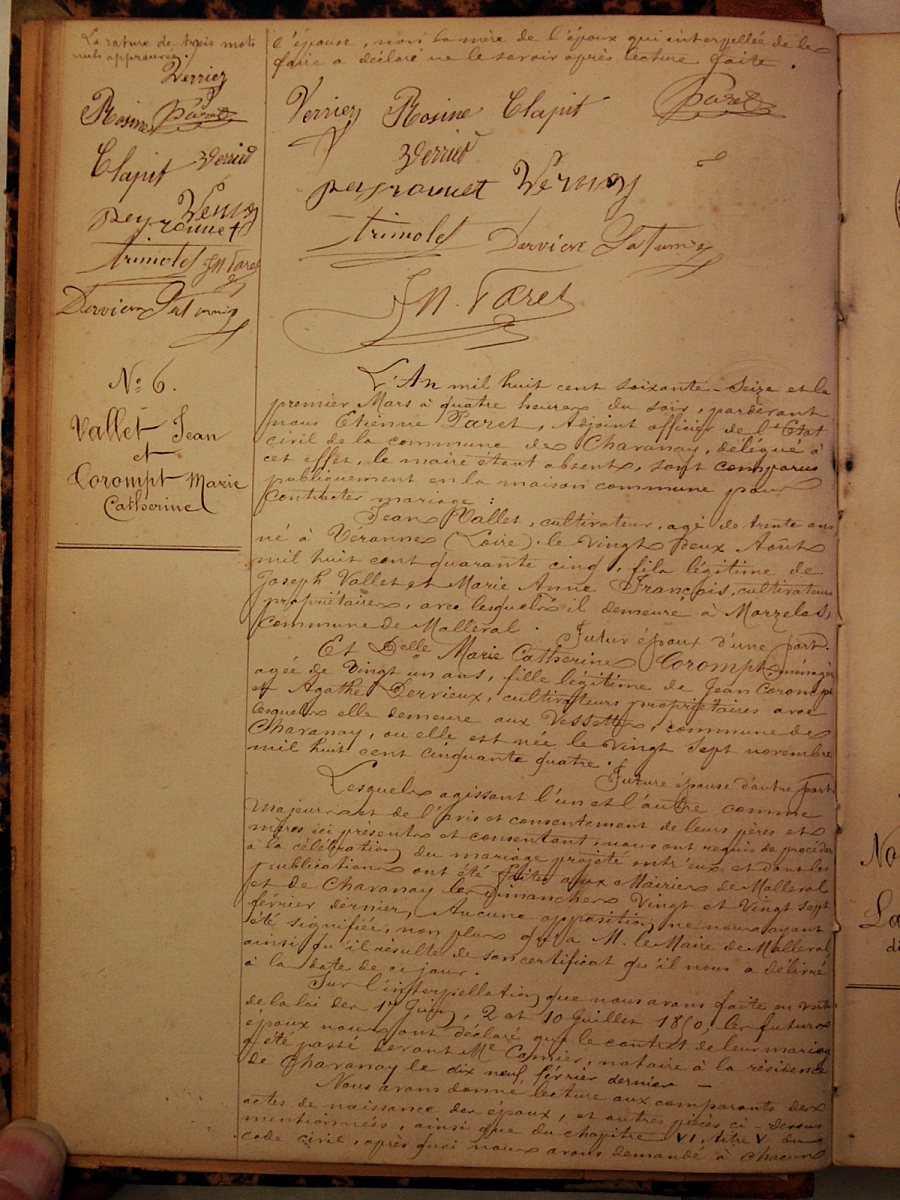 La rature de trois mots
nuls approuvée.
Verrier
Rosine Paret
Clapit Verrier
Vernay
peyrounet
Trimolet JM Paret
Dervieux Saturnin
l'épouse, non la mère de l'époux qui interpellée de le
faire a déclaré ne le savoir après lecture faite.
Verrier Rosine Clapit Paret
Verrier
peyrounet Vernay
Trimolet Dervieux Saturnin
JM. Paret
No 6.
Vallet Jean
et
Corompt Marie
Catherine
L'An mil huit cent soixante-Seize et le
premier Mars à quatre heures du soir, pardevant
nous Etienne Paret, Adjoint officier de l'Etat
civil de la commune de Chavanay, délégué à
cet effet, le maire étant absent, sont comparus
publiquement en la maison commune pour
contracter mariage :
Jean Vallet, cultivateur, agé de trente ans
né à Véranne (Loire) le vingt deux Août
mil huit cent quarante cinq, fils légitime de
Joseph Vallet et Marie Anne François, cultivateurs
propriétaires, avec lesquels il demeure à Marzelas,
commune de Malleval. Futur époux d'une part.
Et Delle Marie Catherine Corompt, ménagère
agée de vingt un ans, fille légitime de Jean Corompt
et Agathe Dervieux, cultivateurs propriétaires avec
lesquels elle demeure aux Vessettes, commune de
Chavanay, ou elle est née le vingt sept novembre
mil huit cent cinquante quatre. Future épouse d'autre part
Lesquels agissant l'un et l'autre comme
Majeurs et de l'avis et consentement de leurs pères et
mères ici présents et consentant, nous ont requis de procéder
à la célébration du mariage projeté entr'eux et dont les
publications ont été faites aux Mairies de Malleval
et de Chavanay les Dimanches Vingt et Vingt sept
février dernier, Aucune opposition ne nous ayant
été signifiée, non plus qu'à M. le Maire de Malleval,
ainsi qu'il résulte de son certificat qu'il nous a délivré
à la date de ce jour.
Sur l'interpellation que nous avons faite en vertu
de la loi des 17 Juin, 2 et 10 Juillet 1850, les futurs
époux nous ont déclaré que le contrat de leur mariage
a été passé devant Me notaire à la résidence
de Chavanay le dix neuf février dernier –
Nous avons donné lecture aux comparants des
actes de naissance des époux, et autres pièces ci-dessus
mentionnées, ainsi que du chapitre VI, titre V du
code civil, après quoi nous avons demandé à chacun
No
La
di